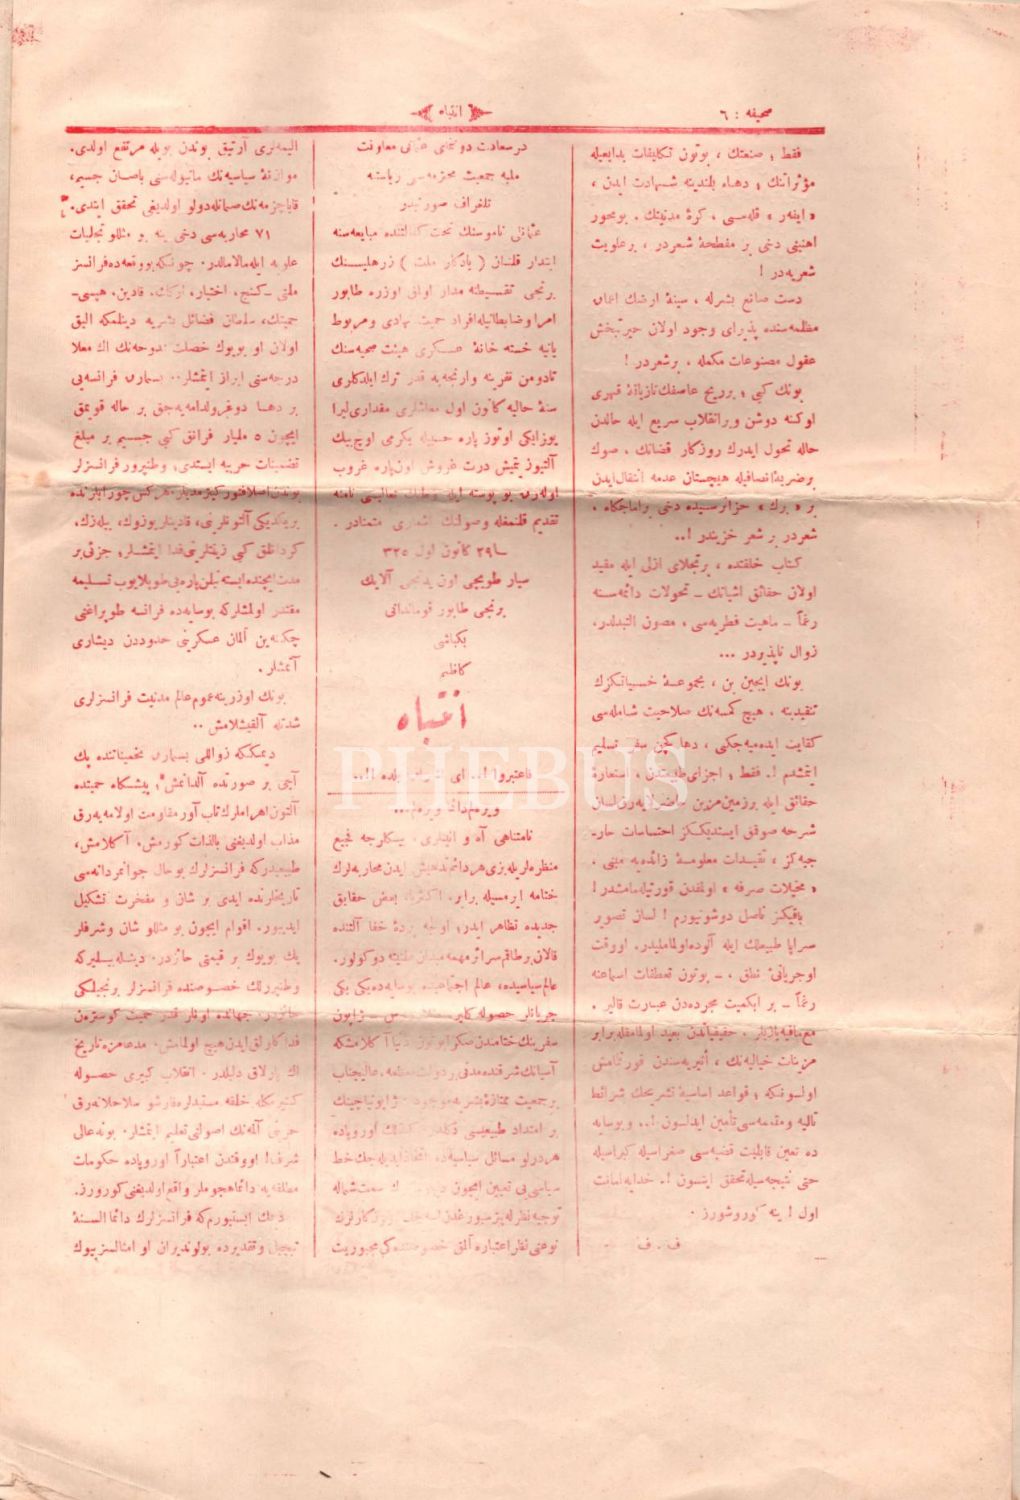 صحیفه : ٦
انتباه
فقط ؛ صنعتك ، بوتون تكلیفات بدایعیله
مؤثراتنك ؛ دهاء بلندینه شهادت ایدن ،
« ایفه‌ر » قله‌سی ، كرۀ مدنیتك . بومحور
اهنینی دخی بر مقطعۀ شعردر ، برعلویت
شعریه‌در !
دست صانع بشرله ، سینۀ ارضك اعماق
مظلمه‌سنده پذیرای وجود اولان حیرتبخش
عقول مصنوعات مكمله ، برشعردر !
بونك كبی ؛ برریح عاصفك تازیانۀ قهری
اوكنه دوشن وبرانقلاب سریع ایله حالدن
حاله تحول ایدرك روزكار قضانك ، صوك
برضربۀ انصافیله هیچستان عدمه انتقال ایدن
بر « برك » خزانرسیده دخی
شعردر بر شعر حزیندر !..
كتاب خلقتده ، برتجلای ازلی ایله مقید
اولان حقائق اشیانك ـ تحولات دائمه‌سنه
رغماً ـ ماهیت فطریه‌سی ، مصون التبدلدر.
زوال ناپذیردر ...
بونك ایچین بن ، مجموعۀ حسیاتكزك
تنقیدینه ، هیچ كمسه‌نك صلاحیت شامله‌سی
كفایت ایده‌میه‌جكنی ، دها كچن سفر تسلیم
ایتمشدم !. فقط ؛ اجزای طبیعتدن ، استعارۀ
حقائق ایله برزمین مزین حاضرلایه‌رق لسان
شرحه صوقق ایستدیككز احتساسات خار-
جیه‌كز ، تقیدات معلومۀ زائدیه مبنی ،
« مخیلات صرفه » اولمقدن قورتیله‌مامشدر !
باقیكز ناصل دوشونیورم ! لسان تصویر
سراپا طبیعتك ایله آلوده اولمامالیدر. اووقت
اوجریانی نطق ، ـ بوتون تعطفات اسماعنه
رغماً ـ بر ابكمیت مجرده‌دن عبارت قالیر .
مع مافیه یازیكز . حقیقیاتدن بعید اولمامقله برابر
مزینات خیالیه‌نك ، أثیریه‌سندن قورتلمامش
اولسونكه ؛ قواعد اساسیۀ تشریحك شرائط
تالیه ومقدمه‌سی تأمین ایدلسون !.. وبوسایه
ده تعین قابلیت قضیه‌سی صغراسیله كبراسیله
حتی نتیجه‌سیله تحقق ایتسون !. خدایه امانت
اول ! ینه كوروشورز .
ف . ف
درسعادت دوننمای عثمانی معاونت
ملیه جمعیت محترمه‌سی ریاستنه
تلغراف صورتیدر
عثمانلی ناموسنك تحت كفالتنده مبایعه‌سنه
ابتدار قلنان ( یادكار ملت ) زرهلیسنك
برنجی تقسیطنه مدار اولق اوزره طابور
امرا وضابطانیله افراد حمیت نهادی ومربوط
یانیه خسته خانۀ عسكری هیئت صحیه‌سنك
تادومن نفرینه وارنجه‌یه قدر ترك ایلدكلری
سنۀ حالیه كانون اول معاشلری مقداری لیرا
یوزایكی اوتوز پاره حسابیله یكرمی اوچ بیك
آلتیوز یتمش درت غروش اون پاره غروب
اوله‌رق بو پوسته ایله وطنك تعالیسی نامنه
تقدیم قلنمغله وصولنك اشعاری متمنادر .
٢٩ كانون اول ٣٢٥
سیار طوپجی اون یدنجی آلایك
برنجی طابور قوماندانی
بكباشی
كاظم
انتباه
فاعتبروا
ویرلم دائما ویره‌لم...
نامتناهی آه و انینلری، بیكلرجه فجیع
منظره‌لریله بزی هر دائم تدهیش ایدن محاربه‌لرك
ختامه ایرمسیله برابر، اكثریا بعض حقایق
جدیده تظاهر ایدر؛ اولجه پردۀ خفا آلتنده
قالان بر طاقم سرائر مهمه میدان علنیته دوكولور.
عالم سیاسیده، عالم اجتماعیده بوسایه‌ده یكی یكی
جریانلر حصوله كلیر روس ـ ژاپون
سفرینك ختامندن صكرا بوتون دنیا آكلامشكه
آسیانك شرقنده مدنی بر دولت معظمه، عالیجناب
بر جمعیت ممتازۀ بشریه موجود، ژاپونیا چینك
بر امتداد طبیعیسی دكلدر. كذلك اوروپاده
هر درلو مسائل سیاسیه‌ده اتخاذ ایدیله جك خط
سیاسی‌یی تعیین ایچون سمت شماله
توجیه نظرله
نوعنی نظر اعتباره آلمق خصوصنده‌كی مجبوریت
الیمه‌لری آرتیق بوندن بویله مرتفع اولدی.
موازنۀ سیاسیه‌نك مانیوله‌سنی باصان جسیم،
قابا چزمه‌نك صمانله دولو اولدیغی تحقق ایتدی.
٧١ محاربه‌سی دخی ینه بو مثللو تجلیات
علویه ایله مالامالدر. چونكه بو وقعه‌ده فرانسز
ملتی ـ كنج، اختیار، اركك، قادین، هپسی ـ
حمیتك، سلطان فضائل بشریه دینلمكه الیق
اولان او بویوك خصلت ممدوحه‌نك اك معلا
درجه‌سنی ابراز ایتمشلر.. بسمارق فرانسه‌یی
بر دها دوغرولدامه‌یه‌جق بر حاله قویمق
ایچون ٥ ملیار فرانق كبی جسیم بر مبلغ
تضمینات حربیه ایستدی؛ وطنپرور فرانسزلر
بوندن اصلا فتور كتیرمدیلر. هركس چورابلرنده
بریكدیكی آلتونلرینی، قادینلر یوزوك، بیله‌زك،
كردانلق كبی زینتلرینی فدا ایتمشلر؛ جزئی بر
مدت ایچنده ایسته نیلن پاره‌یی طوپلایوب تسلیمه
مقتدر اولمشلركه بوسایه‌ده فرانسه طوپراغنی
چكنه‌ین آلمان عسكرینی حدوددن دیشاری
آتمشلر .
بونك اوزرینه عموم عالم مدنیت فرانسزلری
شدتله آلقیشلامش ..
دیمككه زواللی بسمارق تخمیناتنده پك
آجی بر صورتده آلدانمش؛ پیشكاه حمیتده
آلتون اهراملرك تاب آور مقاومت اولامه‌یه‌رق
مذاب اولدیغنی بالذات كورمش، آكلامش،
طبیعیدركه فرانسزلرك بو حال جوانمردانه‌سی
تاریخلرنده ابدی بر شان و مفخرت تشكیل
ایدییور. اقوام ایچون بو مثللو شان وشرفلر
پك بویوك بر قیمتی حائزدر. دینیله بیلیركه
وطنپرلك خصوصنده فرانسزلر برنجیلكی
حائزدر. جهانده اونلر قدر حمیت كوسترن
فداكارلق ایدن هیچ اولمامش. مدعامزه تاریخ
اك پارلاق دلیلدر. انقلاب كبیری حصوله
كتیرمكله خلقه مستبدلره قارشو سلاحلانه‌رق
حریتی آلمه‌نك اصولنی تعلیم ایتمشلر. بو نه عالی
شرف! او وقتدن اعتباراً اوروپاده حكومات
مطلقه‌یه دائما هجوملر واقع اولدیغنی كورورز.
دیمك ایستیورم كه فرانسزلرك دائما السنۀ
تبجیل وتقدیرده بولوندیران او امثالسز بیوك
PHEBUS